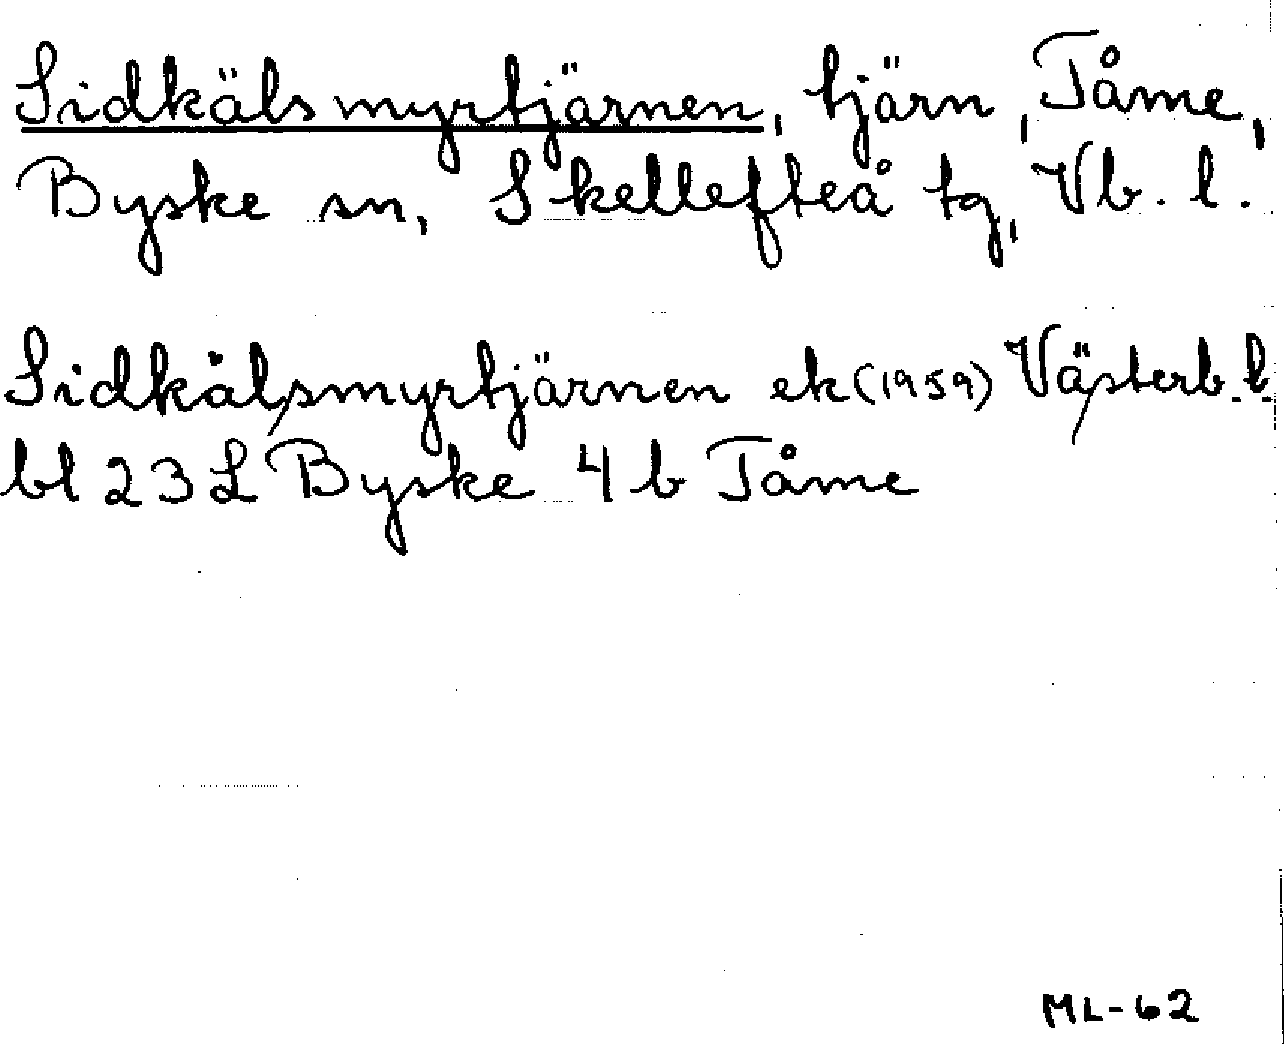 Sidkälsmyrtjärnen, tjärn, Tåme,
Byske sn, Skellefteå tg, Vb. l.
Sidkälsmyrtjärnen ek (1959) Västerb. l.
bl 23 L Byske 4 b Tåme
ML-62